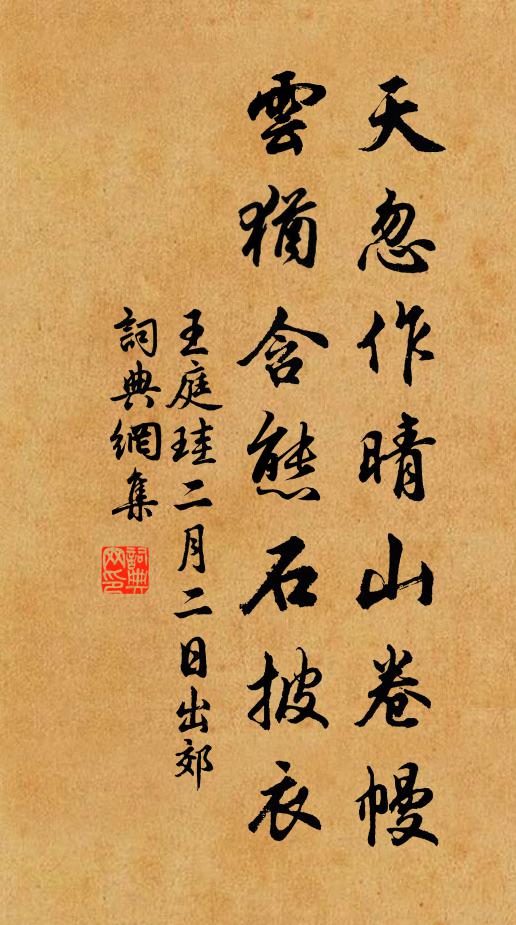 天忽作晴山卷幔
雲猶含態石披衣
王庭珪二月二日出郊
詞典網集
詞典網印